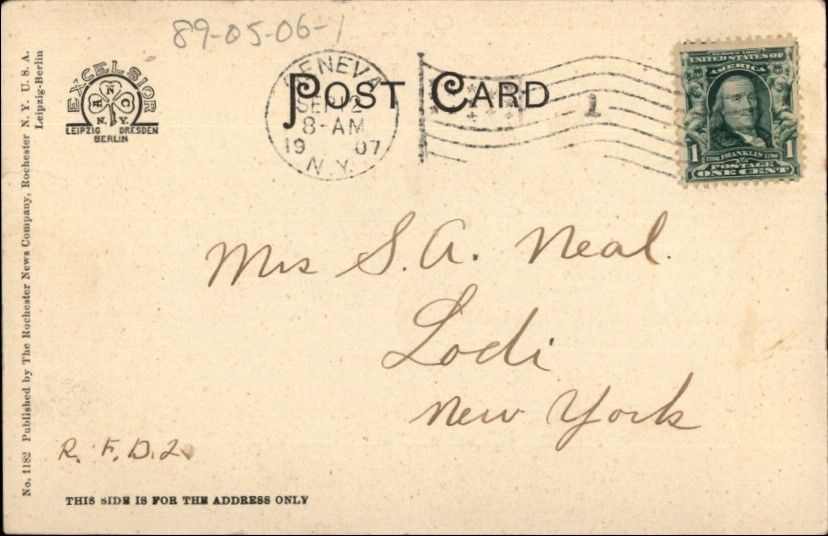 89-05-06-1
EXCELSIOR
R N C
N.Y.
LEIPZIG DRESDEN
BERLIN
POST CARD
GENEVA
SEP 2
8-AM
19 07
N.Y.
1
UNITED STATES OF
AMERICA
1 FRANKLIN 1
POSTAGE
ONE CENT
Mrs S. A. Neal.
Lodi
New York
R. F. D. 2
THIS SIDE IS FOR THE ADDRESS ONLY
No. 1182 Published by The Rochester News Company, Rochester N. Y. U. S. A.
Leipzig-Berlin